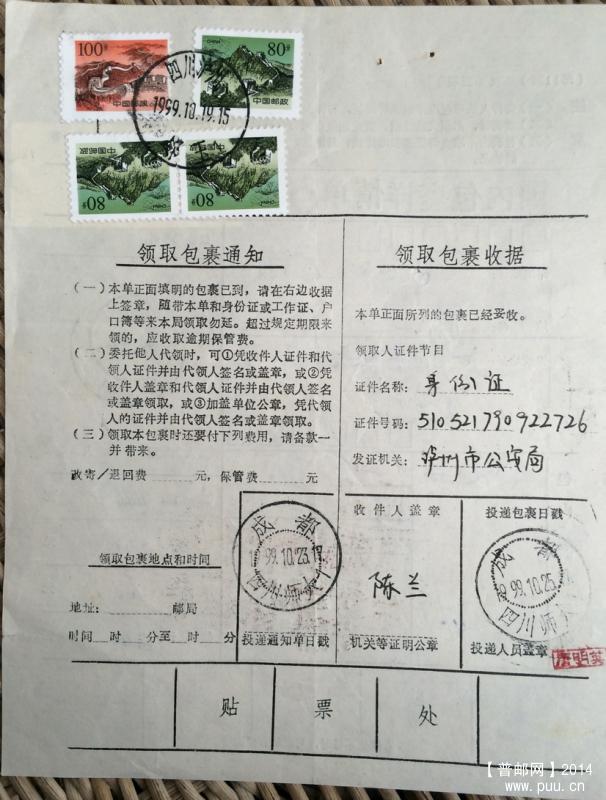 100分
中国邮政
80分
CHINA
中国邮政
四川泸州
1999.10.19.15
中国邮政
80分
CHINA
中国邮政
80分
CHINA
领取包裹通知
(一)本单正面填明的包裹已到，请在右边收据
上签章，随带本单和身份证或工作证、户
口簿等来本局领取勿延。超过规定期限来
领的，应收取逾期保管费。
(二)委托他人代领时，可①凭收件人证件和代
领人证件并由代领人签名或盖章，或②凭
收件人盖章和代领人证件并由代领人签名
或盖章领取，或③加盖单位公章，凭代领
人的证件并由代领人签名或盖章领取。
(三)领取本包裹时还要付下列费用，请备款一
并带来。
改寄/退回费 元，保管费 元
领取包裹地点和时间
地址： 邮局
时间 时 分至 时 分
成都
99.10.23.17
四川师大
投递通知单日戳
领取包裹收据
本单正面所列的包裹已经妥收。
领取人证件节目
证件名称：身份证
证件号码：510521790922726
发证机关：泸州市公安局
收件人盖章
陈兰
机关等证明公章
投递包裹日戳
成都
99.10.25
四川师
投递人员盖章
贴 票 处
【普邮网】2014
www.puu.cn